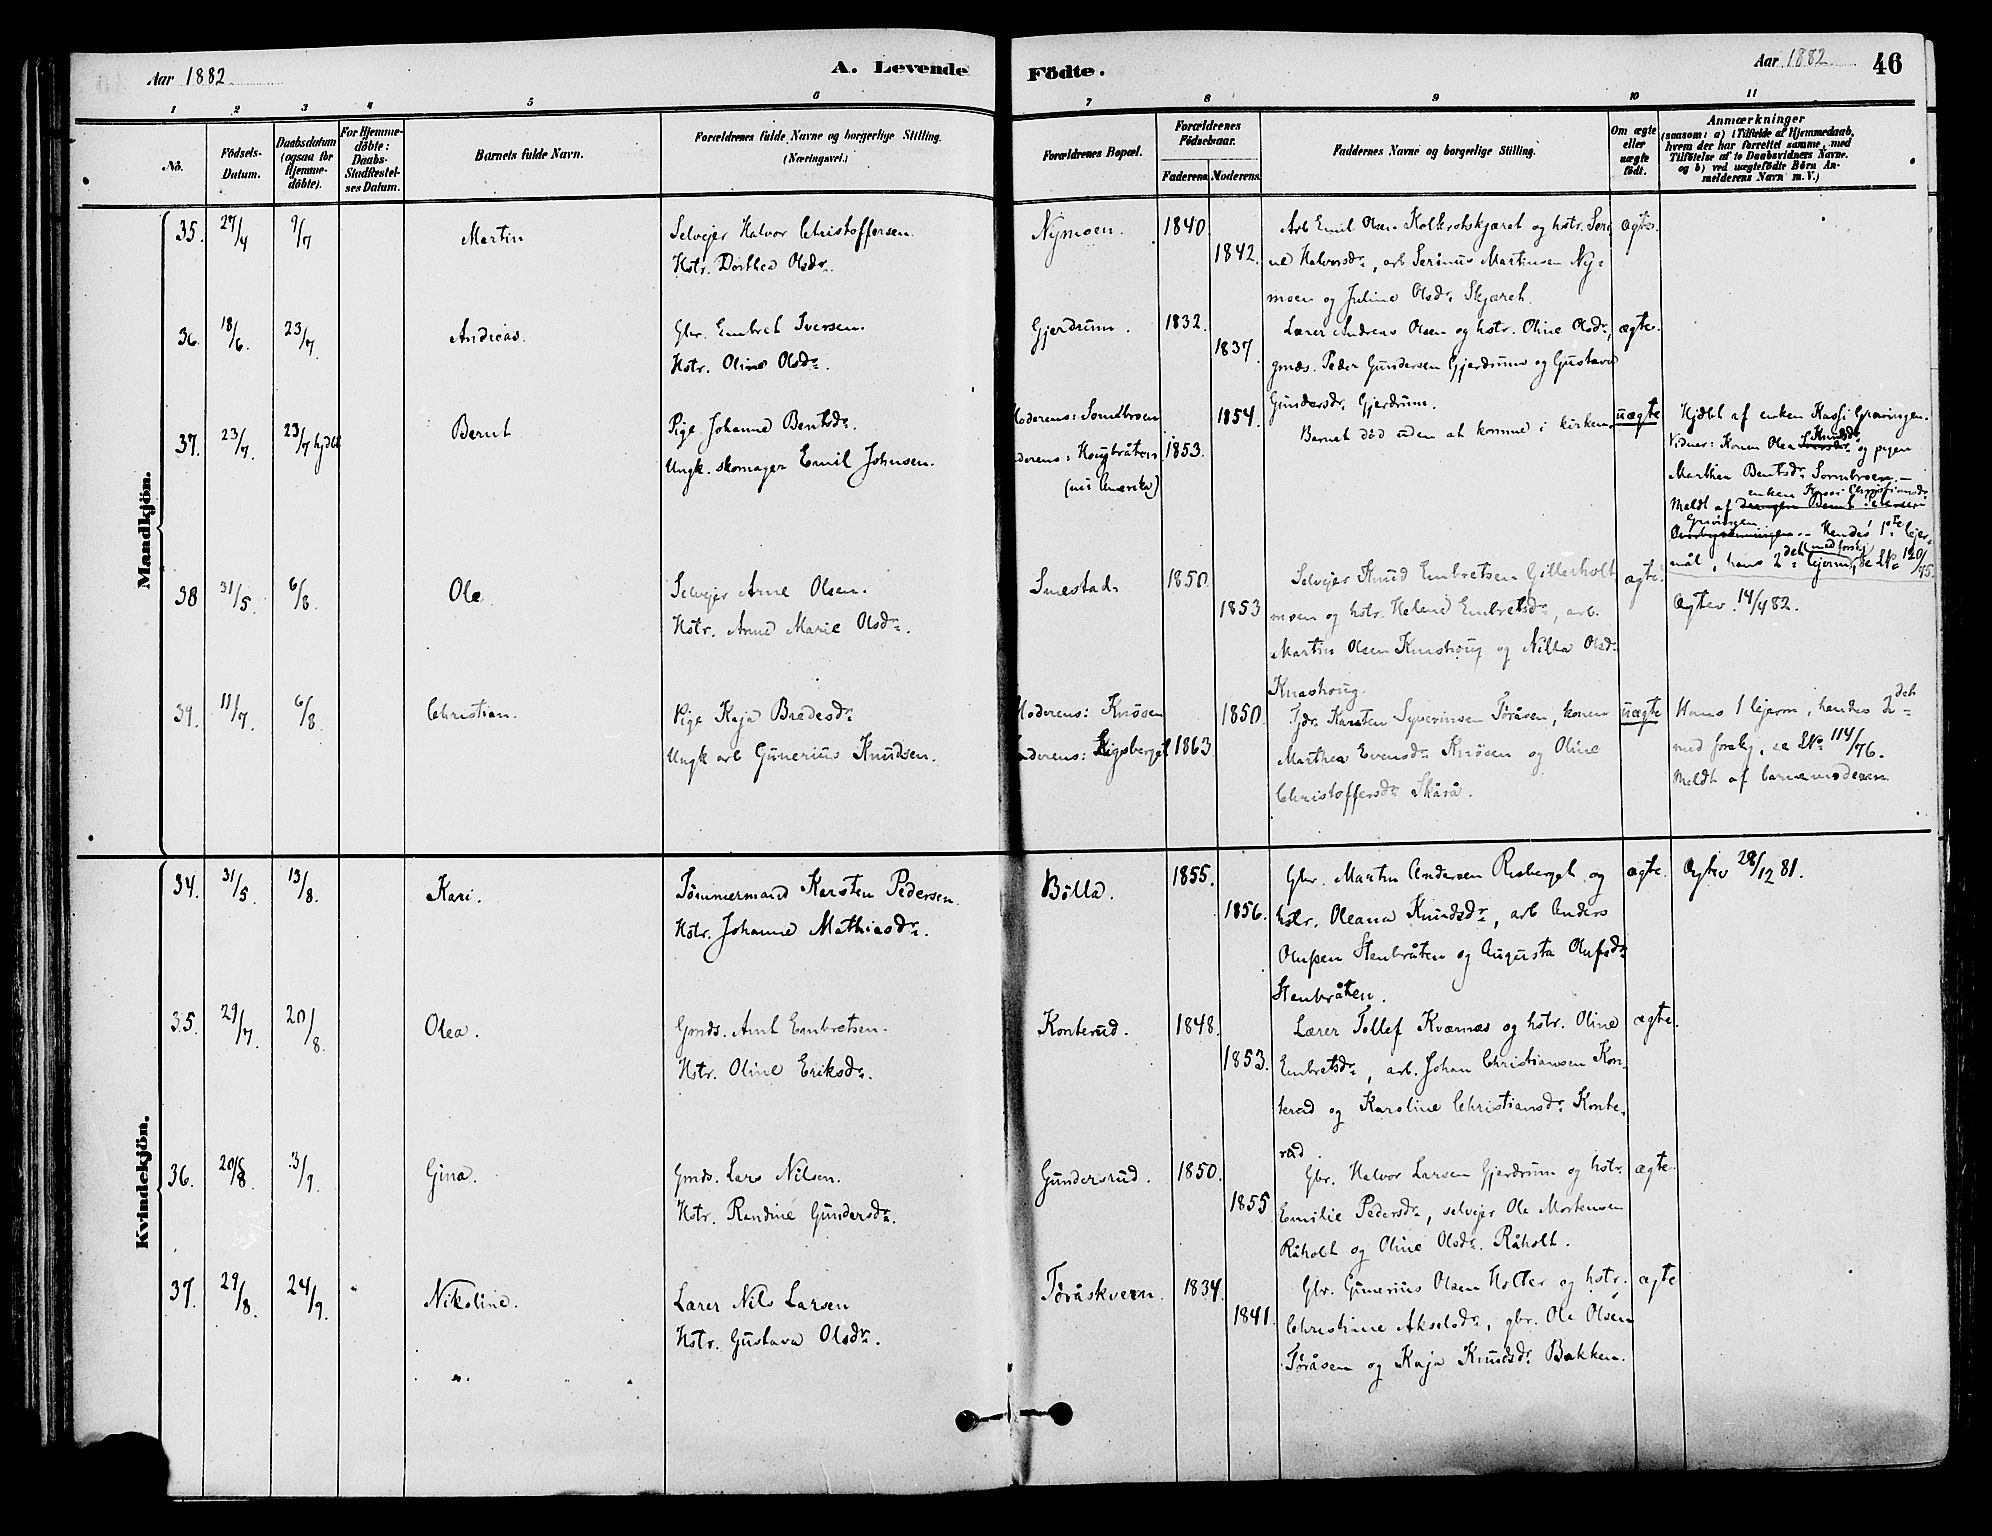 Aar 1882
A. Levende Födte.
Aar 1882
46
1 2 3 4 5 6 7 8 9 10 11
No.
Födsels-Datum.
Daabsdatum (ogsaa for Hjemme-döbte).
For Hjemme-döbte: Daabs-Stadfæstel-ses Datum.
Barnets fulde Navn.
Forældrenes fulde Navne og borgerlige Stilling. (Næringsvei.)
Forældrenes Bopæl.
Forældrenes Födselsaar.
Faderens Moderens
Faddernes Navne og borgerlige Stilling.
Om ægte eller uægte födt.
Anmærkninger
(saasom: a) i Tilfælde af Hjemmedaab,
hvem der har forrettet samme, med
Tilföielse af to Daabsvidners Navne.
og b) ved uægtefödte Börn An-
melderens Navn m. V.)
Mandkjön.
35. 27/4 9/7 Martin
Selvejer Halvor Christoffersen.
Hstr. Dorthea Olsdr.
Nymoen. 1840. 1842.
Arb Emil Olsen Kolkrotskjæret og hstr. Seri
ne Halvorsdr., arb Serinus Martinsen Ny-
moen og Juline Olsdr. Skjæret.
ægte.
36. 18/6 23/7 Andreas.
Gbr. Embret Iversen.
Hstr. Oline Olsdr.
Gjerdrum. 1832. 1837.
Lærer Andreas Olsen og hstr. Oline Olsdr,
gmds. Peder Gundersen Gjerdrum og Gustava
Gundersdr. Gjerdrum.
ægte.
37. 23/7 23/7 hjdbt Bernt
Pige Johanne Bentsdr.
Ungk. skomager Emil Johnsen.
Moderens: Sombroen 1854.
Faderens: Hougbråten 1853.
(nu i Amerika)
Barnet död uden at komme i kirken.
uægte
Hjdbt af enken Kassi Gravingen.
Vidner: Konen Olea Knudsdr. og pigen
Marthea Bentsdr. Sombroen. —
Meldt af enken Kassi Christiansdr.
Gravingen. Hendes 1ste lejer-
mål, hans 2det med forskj. lejerm, se No 120/75.
38 31/5. 6/8. Ole
Selvejer Arne Olsen.
Hstr. Anne Marie Olsdr.
Smestad. 1850. 1853
Selvejer Knud Embretsen Gillerholt
moen og hstr. Helene Embretsdr., arb.
Martin Olsen Knashoug og Nilla Olsdr.
Knashoug.
ægte.
Ægtev. 14/4 82.
39. 11/7 6/8 Christian.
Pige Kaja Bredesdr.
Ungk arb Gunerius Knudsen.
Moderens: Knösen 1850.
Faderens: Ligsberget 1863
Gdr. Karsten Syverinsen Töråsen, konen
Marthea Evensdr. Knösen og Oline
Christoffersdr. Skårå.
uægte
Hans 1 lejerm, hendes 2det
med forskj, se No 114/76.
Meldt af barnemoderen
Kvindekjön.
34. 31/5 13/8. Kari.
Tömmermand Karsten Pedersen.
Hstr. Johanne Mathiasdr.
Bölla. 1855. 1856.
Gbr. Martin Andersen Risberget og
hstr. Oleana Knudsdr., arb Anders
Olufsen Stenbråten og Augusta Olufsdr.
Stenbråten.
ægte.
Ægtev 28/12 81.
35. 29/7. 20/8. Olea.
Gmds. Amt Embretsen.
Hstr. Oline Eriksdr.
Konterud. 1848. 1853.
Lærer Tollef Kværnæs og hstr. Oline
Embretsdr., arb. Johan Christiansen Kon-
terud og Karoline Christiansdr. Konte-
rud.
ægte.
36. 20/8 3/9. Gina.
Gmds. Lars Nilsen.
Hstr. Randine Gundersdr.
Gundersrud. 1850. 1855
Gbr. Halvor Larsen Gjerdrum og hstr.
Emilie Pedersdr., selvejer Ole Mortensen
Råholt og Oline Olsdr. Råholt.
ægte.
37. 29/8. 24/9. Nikoline.
Lærer Nils Larsen
Hstr. Gustava Olsdr.
Töråskvern. 1834. 1841.
Gbr. Gunerius Olsen Holter og hstr.
Christine Akselsdr., gbr. Ole Olsen
Töråsen og Kaja Knudsdr. Bakken.
ægte